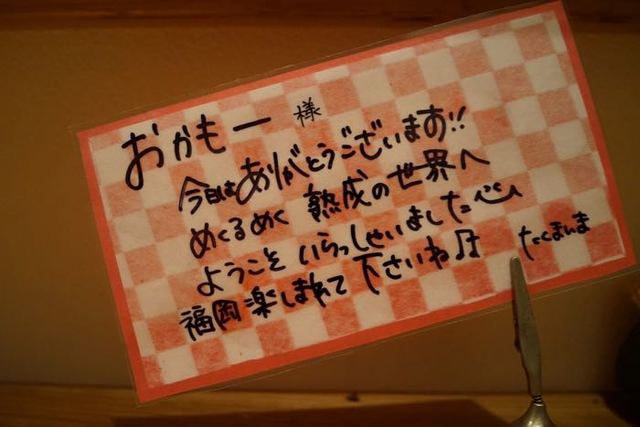 おかもー 様
今日はありがとうございます!!
めくるめく 熟成の世界へ
ようこそ いらっしゃいました
福岡楽しまれて下さいね♫
たくまいま